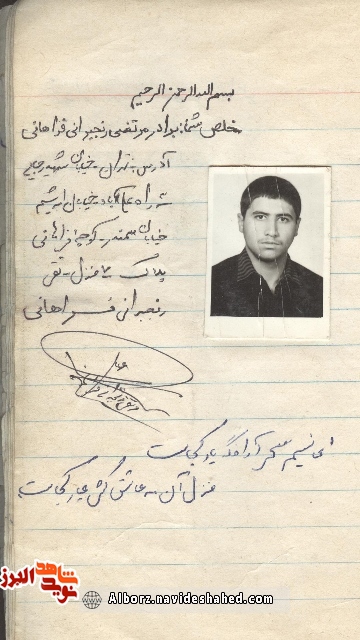 بسم الله الرحمن الرحیم
مخلص شما: برادر مرتضی رنجبرانی فراهانی
آدرس: تهران - خیابان شهید رجایی
خیابان ابریشم
خیابان سمندر - کوچه فراهانی
پلاک ۷ منزل - تقی
رنجبرانی فراهانی
ای نسیم سحر آرامگه یار کجاست
منزل آن مه عاشق کش عیار کجاست
نوید شاهد البرز
Alborz.navideshahed.com